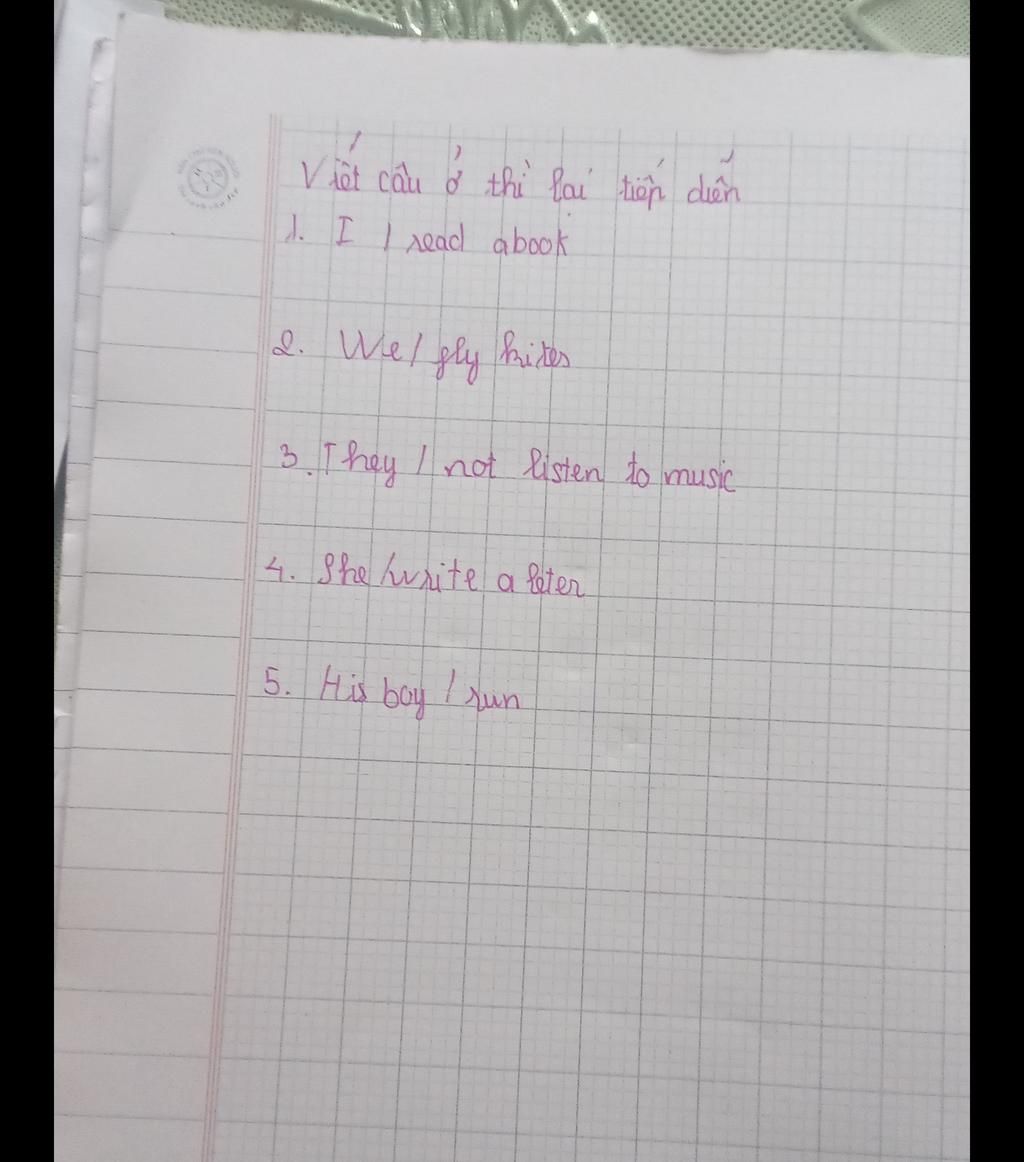 Viết câu ở thì lại tiếp diễn
1. I / read abook
2. We / fly kites
3. They / not listen to music
4. She / write a leter
5. His boy / run